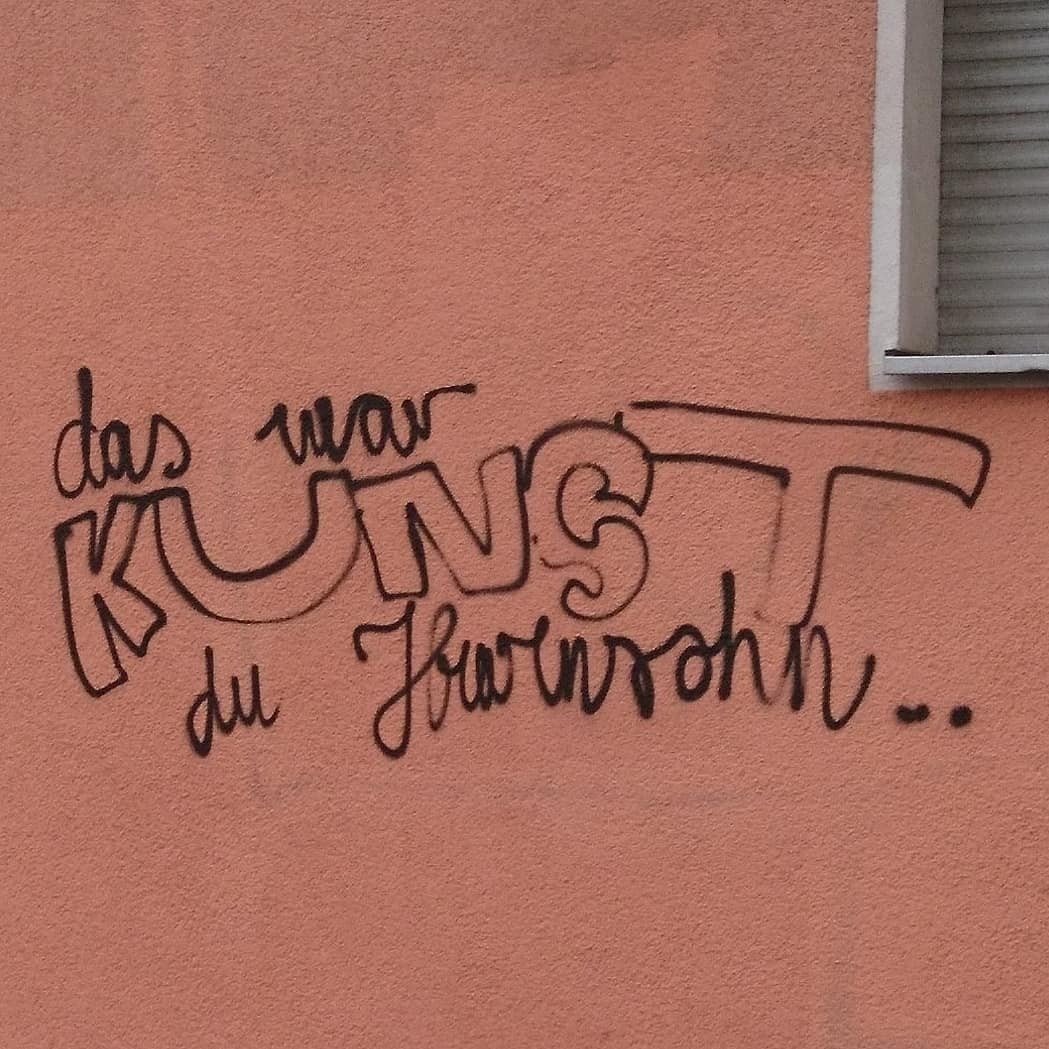 das war
KUNST
du Hurensohn...